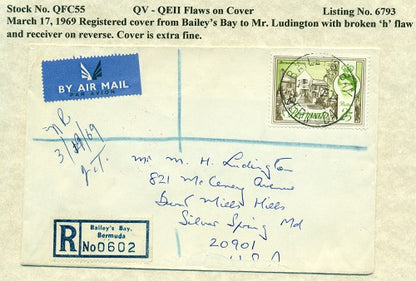 Stock No. QFC55 QV - QEII Flaws on Cover Listing No. 6793
March 17, 1969 Registered cover from Bailey's Bay to Mr. Ludington with broken 'h' flaw
and receiver on reverse. Cover is extra fine.
BY AIR MAIL
PAR AVION
Mr M. H. Ludington
821 McCeney Avenue
Burnt Mills Hills
Silver Spring Md
20901
U.S.A
R
Bailey's Bay,
Bermuda
No 0602